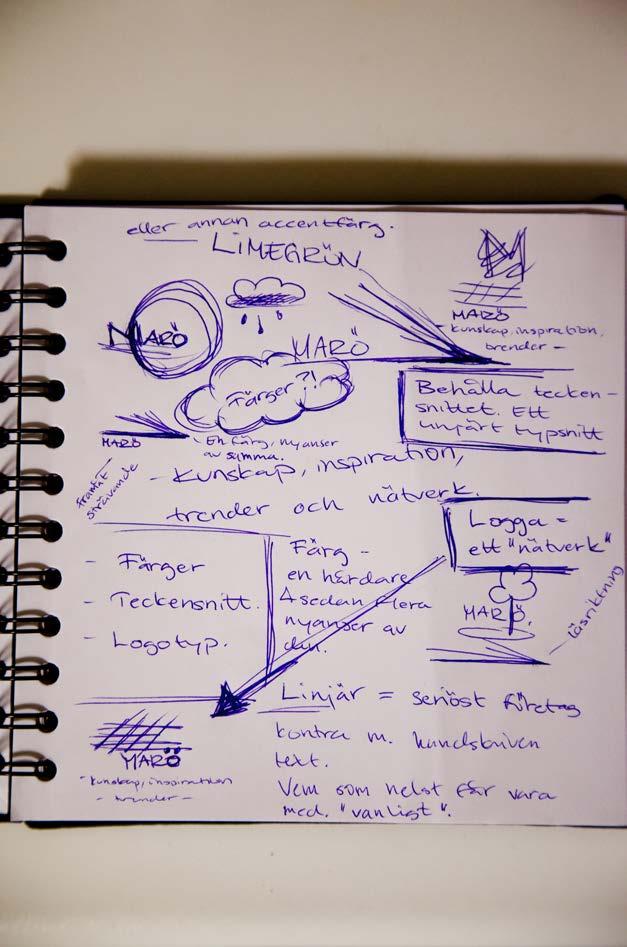 eller annan accentfärg.
LIMEGRÖN
MARÖ
- kunskap, inspiration,
trender -
MARÖ
MARÖ
Färger?!
Behålla tecken-
snittet. Ett
linjärt typsnitt
MARÖ
- En färg, nyanser
av samma.
framåt
strävande
- Kunskap, inspiration,
trender och nätverk.
Logga =
ett "nätverk"
- Färger
- Teckensnitt.
- Logotyp.
Färg -
en hårdare
& sedan flera
nyanser av
den.
MARÖ.
läsriktning
MARÖ
- kunskap, inspiration
- trender -
Linjär = seriöst företag
kontra m. handskriven
text.
Vem som helst får vara
med. "vanligt".